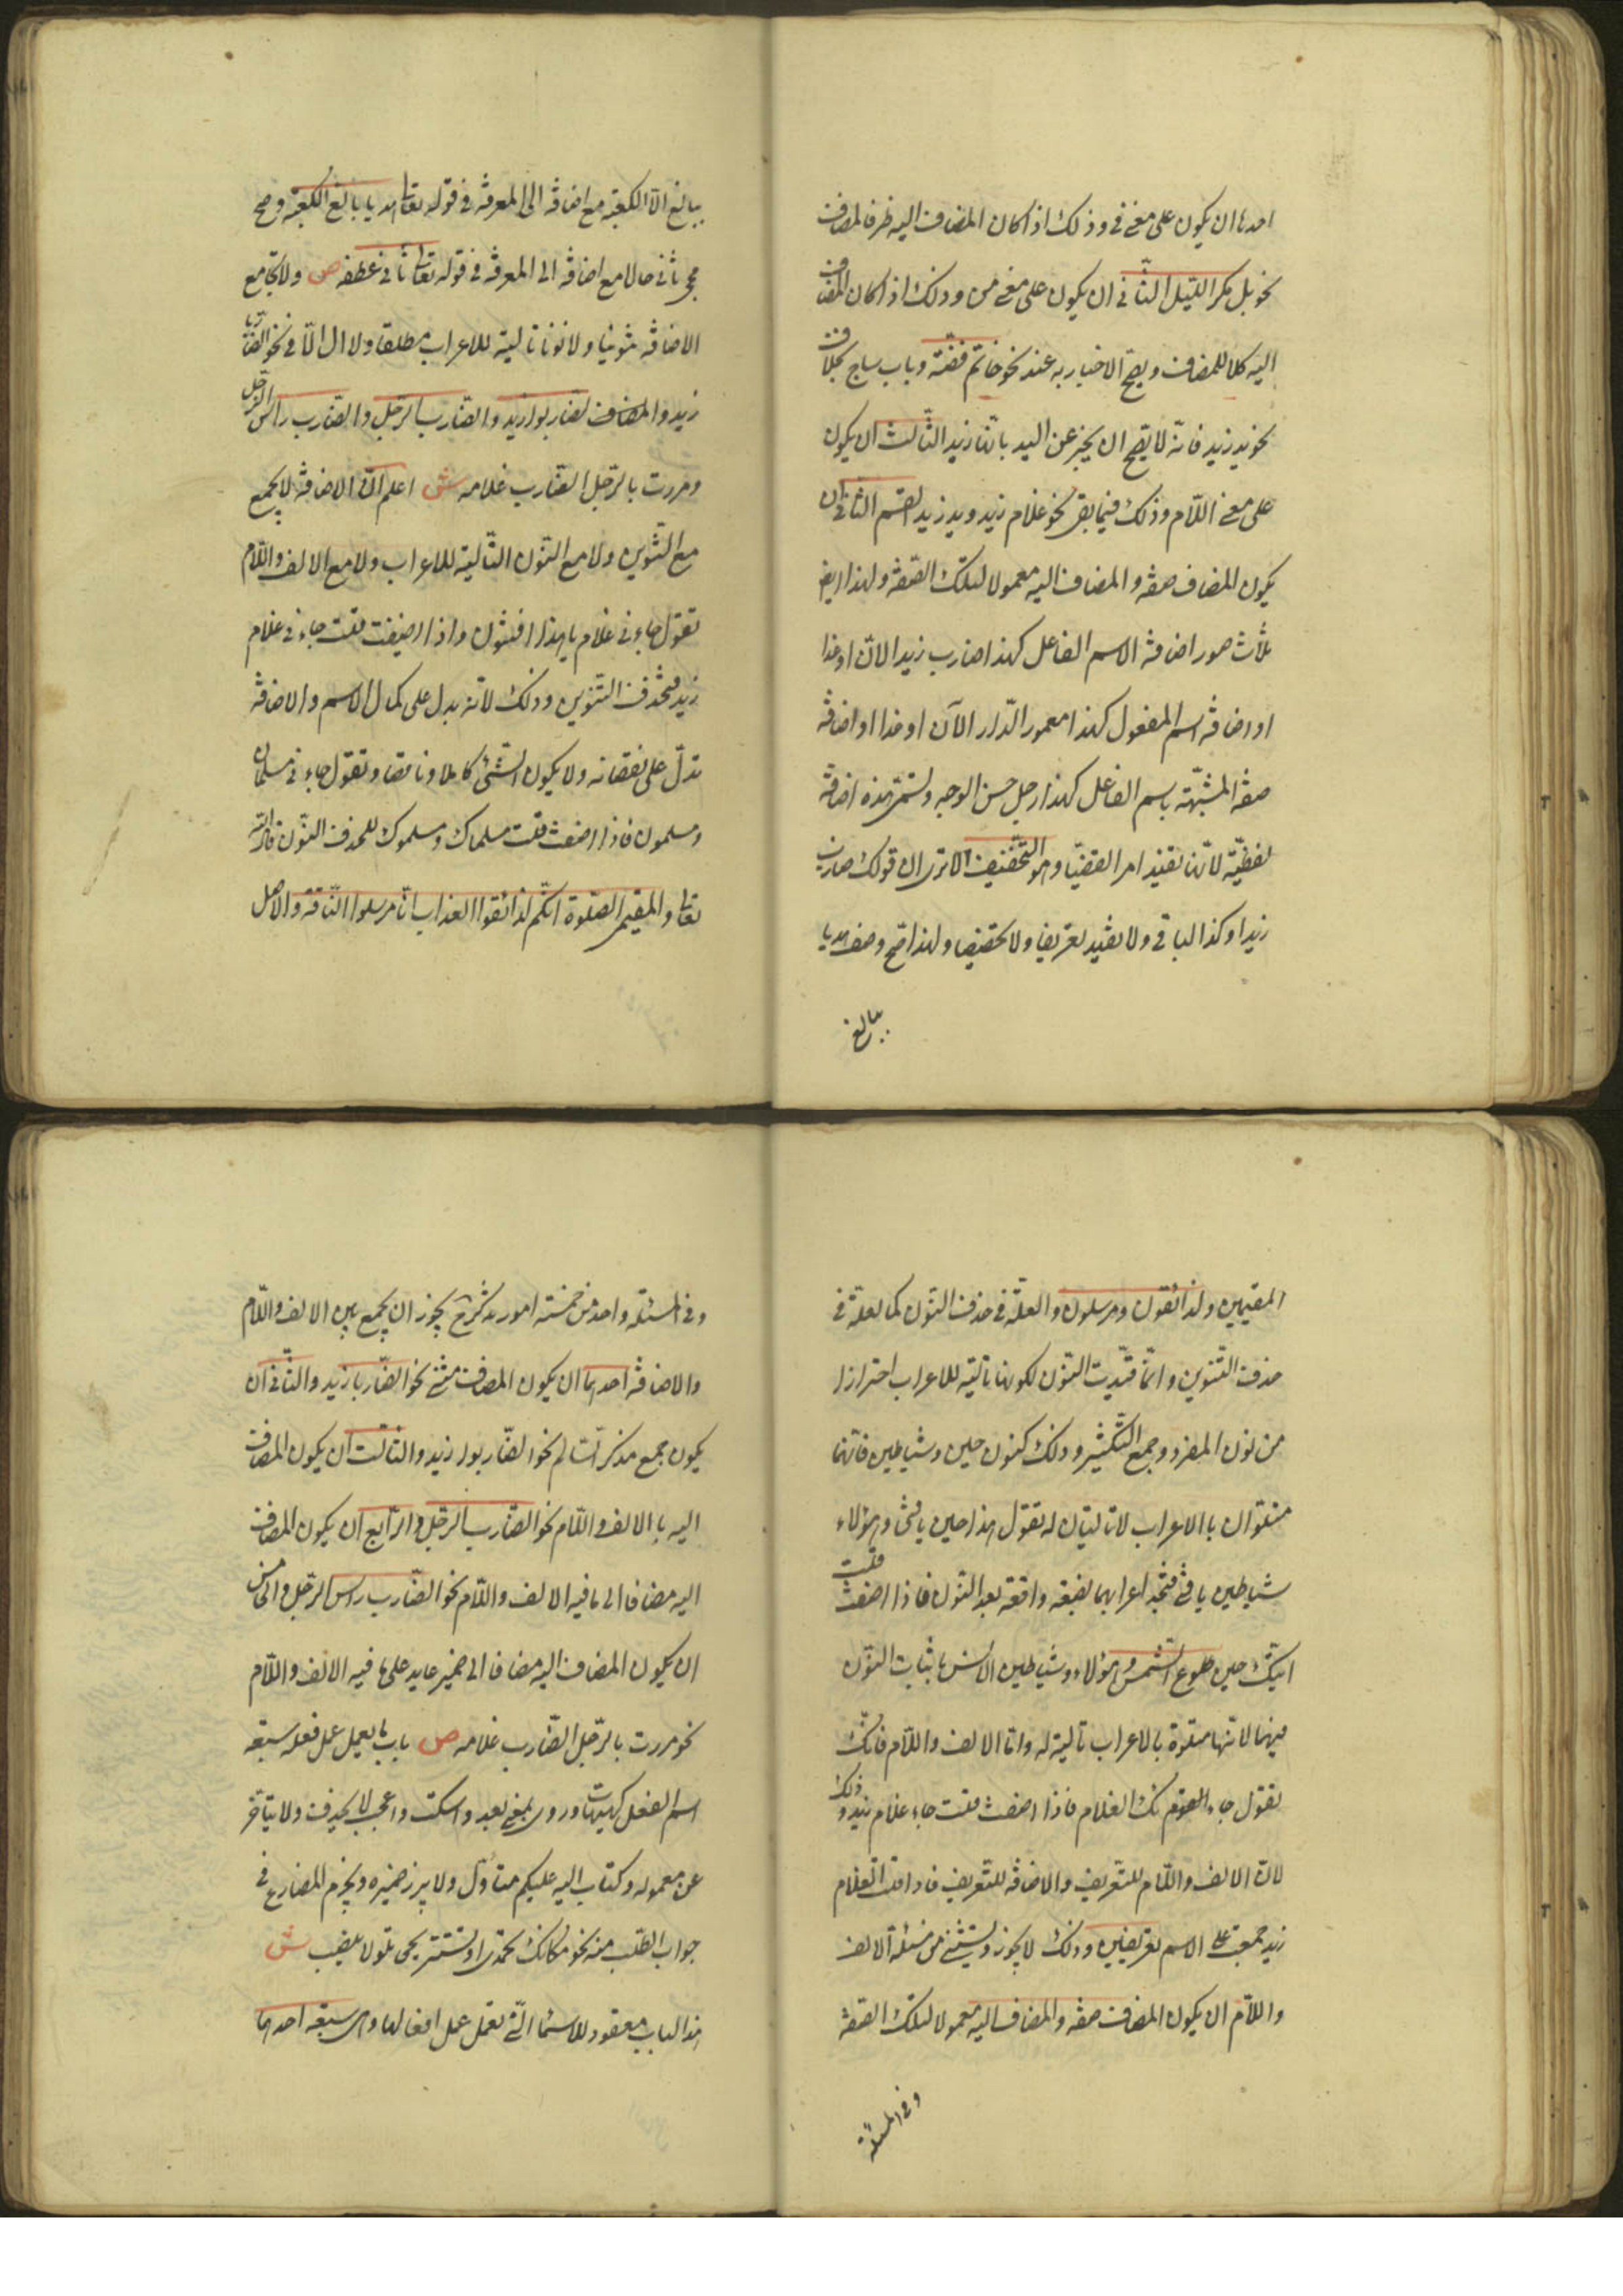 احدها ان يكون على معنى فى وذلك اذا كان المضاف اليه ظرفا للمضاف
نحو بل مكر الليل الثّانى ان يكون على معنى من وذلك اذا كان المضاف
اليه كلا للمضاف ويصحّ الاخبار به عنه نحو خاتم فضّة وباب ساج بخلاف
نحو يد زيد فانّه لا يصحّ ان يخبر عن اليد بانّها زيد الثّالث ان يكون
على معنى اللّام وذلك فيما بقى نحو غلام زيد ويد زيد القسم الثانى ان
يكون المضاف صفة والمضاف اليه معمولا لتلك الصّفة ولهذا ايضا
ثلاث صور اضافة الاسم الفاعل كهذا ضارب زيد الان او غدا
او اضافة اسم المفعول كهذا معمور الدّار الآن او غدا او اضافة
صفة المشبّهة باسم الفاعل كهذا رجل حسن الوجه وتسمّى هذه اضافة
لفظيّة لانّها تفيد امرا لفظيّا وهو التّخفيف الا ترى ان قولك ضارب
زيد او كذا الباقى ولا تفيد تعريفا ولا تخفيفا ولهذا صحّ وصف هديا
ببالغ
ببالغ الا الكعبة مع اضافة الى المعرفة فى قوله تعا هديا بالغ الكعبة وصح
مجئ ثانى حالا مع اضافة الى المعرفة فى قوله تعا ثانى عطفه ص ولا تجامع
الاضافة تنوينا ولا نونا تالية للاعراب مطلقا ولا ال الّا فى نحو الضّاربا
زيد والمضاف لضاربوا زيد والضارب الرّجل والضارب راس الرّجل
ومررت بالرّجل الضّارب غلامه ش اعلم انّ الاضافة لا تجمع
مع التنوين ولا مع النّون التّالية للاعراب ولا مع الالف واللّام
تقول جاءنى غلام يا هذا فتنون واذا اضيفت قلت جاءنى غلام
زيد فتحذف التّنوين وذلك لانّه يدل على كمال الاسم والاضافة
تدلّ على نقصانه ولا يكون الشّئ كاملا وناقصا وتقول جاءنى مسلمان
ومسلمون فاذا اضفت قلت مسلماك ومسلموك للحذف النّون قال الله
تعا والمقيمى الصّلوة انّكم لذائقوا العذاب انّا مرسلوا النّاقة والاصل
المقيمين ولذائقون ومرسلون والعلّة فى حذف النّون كما لعلّة فى
حذف التّنوين وانّما قيّدت النّون لكونها تالية للاعراب احترازا
من نون المفرد وجمع التّكسير وذلك كنون حين وشياطين فانّهما
متلوّان بالاعراب لا تاليتان له تقول هذا حين يا فتى وهؤلاء
شياطين يا فتى فتجد اعرابهما بضمّة واقعة بعد النّون فاذا اضفت قلت
اتيتك حين طلوع الشّمس وهؤلاء شياطين الانس باثبات النّون
فيهما لانّها متلوّة بالاعراب تالية له وامّا الالف واللّام فانّك
تقول جاء الغلام فاذا اضفت قلت جاء غلام زيد وذلك
لانّ الالف واللّام للتّعريف والاضافة للتّعريف فلو قلت الغلام
زيد جمعت على الاسم تعريفين وذلك لا يجوز ويستثنى من مسئلة الالف
واللّام ان يكون المضاف صفة والمضاف اليه معمولا لتلك الصّفة
وفى المسئلة
وفى المسئلة واحد من خمسة امور تذكر ح يجوز ان يجمع بين الالف واللّام
والاضافة احدها ان يكون المضاف مثنّى نحو الضّاربا زيد والثّانى ان
يكون جمع مذكر السّالم نحو الضّاربوا زيد والثالث ان يكون المضاف
اليه بالالف واللّام نحو الضّارب الرّجل والرّابع ان يكون المضاف
اليه مضافا الى ما فيه الالف واللّام نحو الضّارب راس الرّجل والخامس
ان يكون المضاف اليه مضافا الى ضمير عايد على ما فيه الالف واللّام
نحو مررت بالرّجل الضّارب غلامه ص باب ما يعمل عمل فعله سبعة
اسم الفعل كهيهات وروى بمعنى بعد واسكت واعجب لا يحذف ولا يتأخر
عن معموله وكتاب الله عليكم متأوّل ولا يبرز ضميره ويجزم المضارع فى
جواب الطّلب منه نحو مكانك تحمدى او تستريحى ولا ينصب ش
هذا الباب معقود للاسماء الّتى تعمل عمل افعالها وهى سبعة احدها